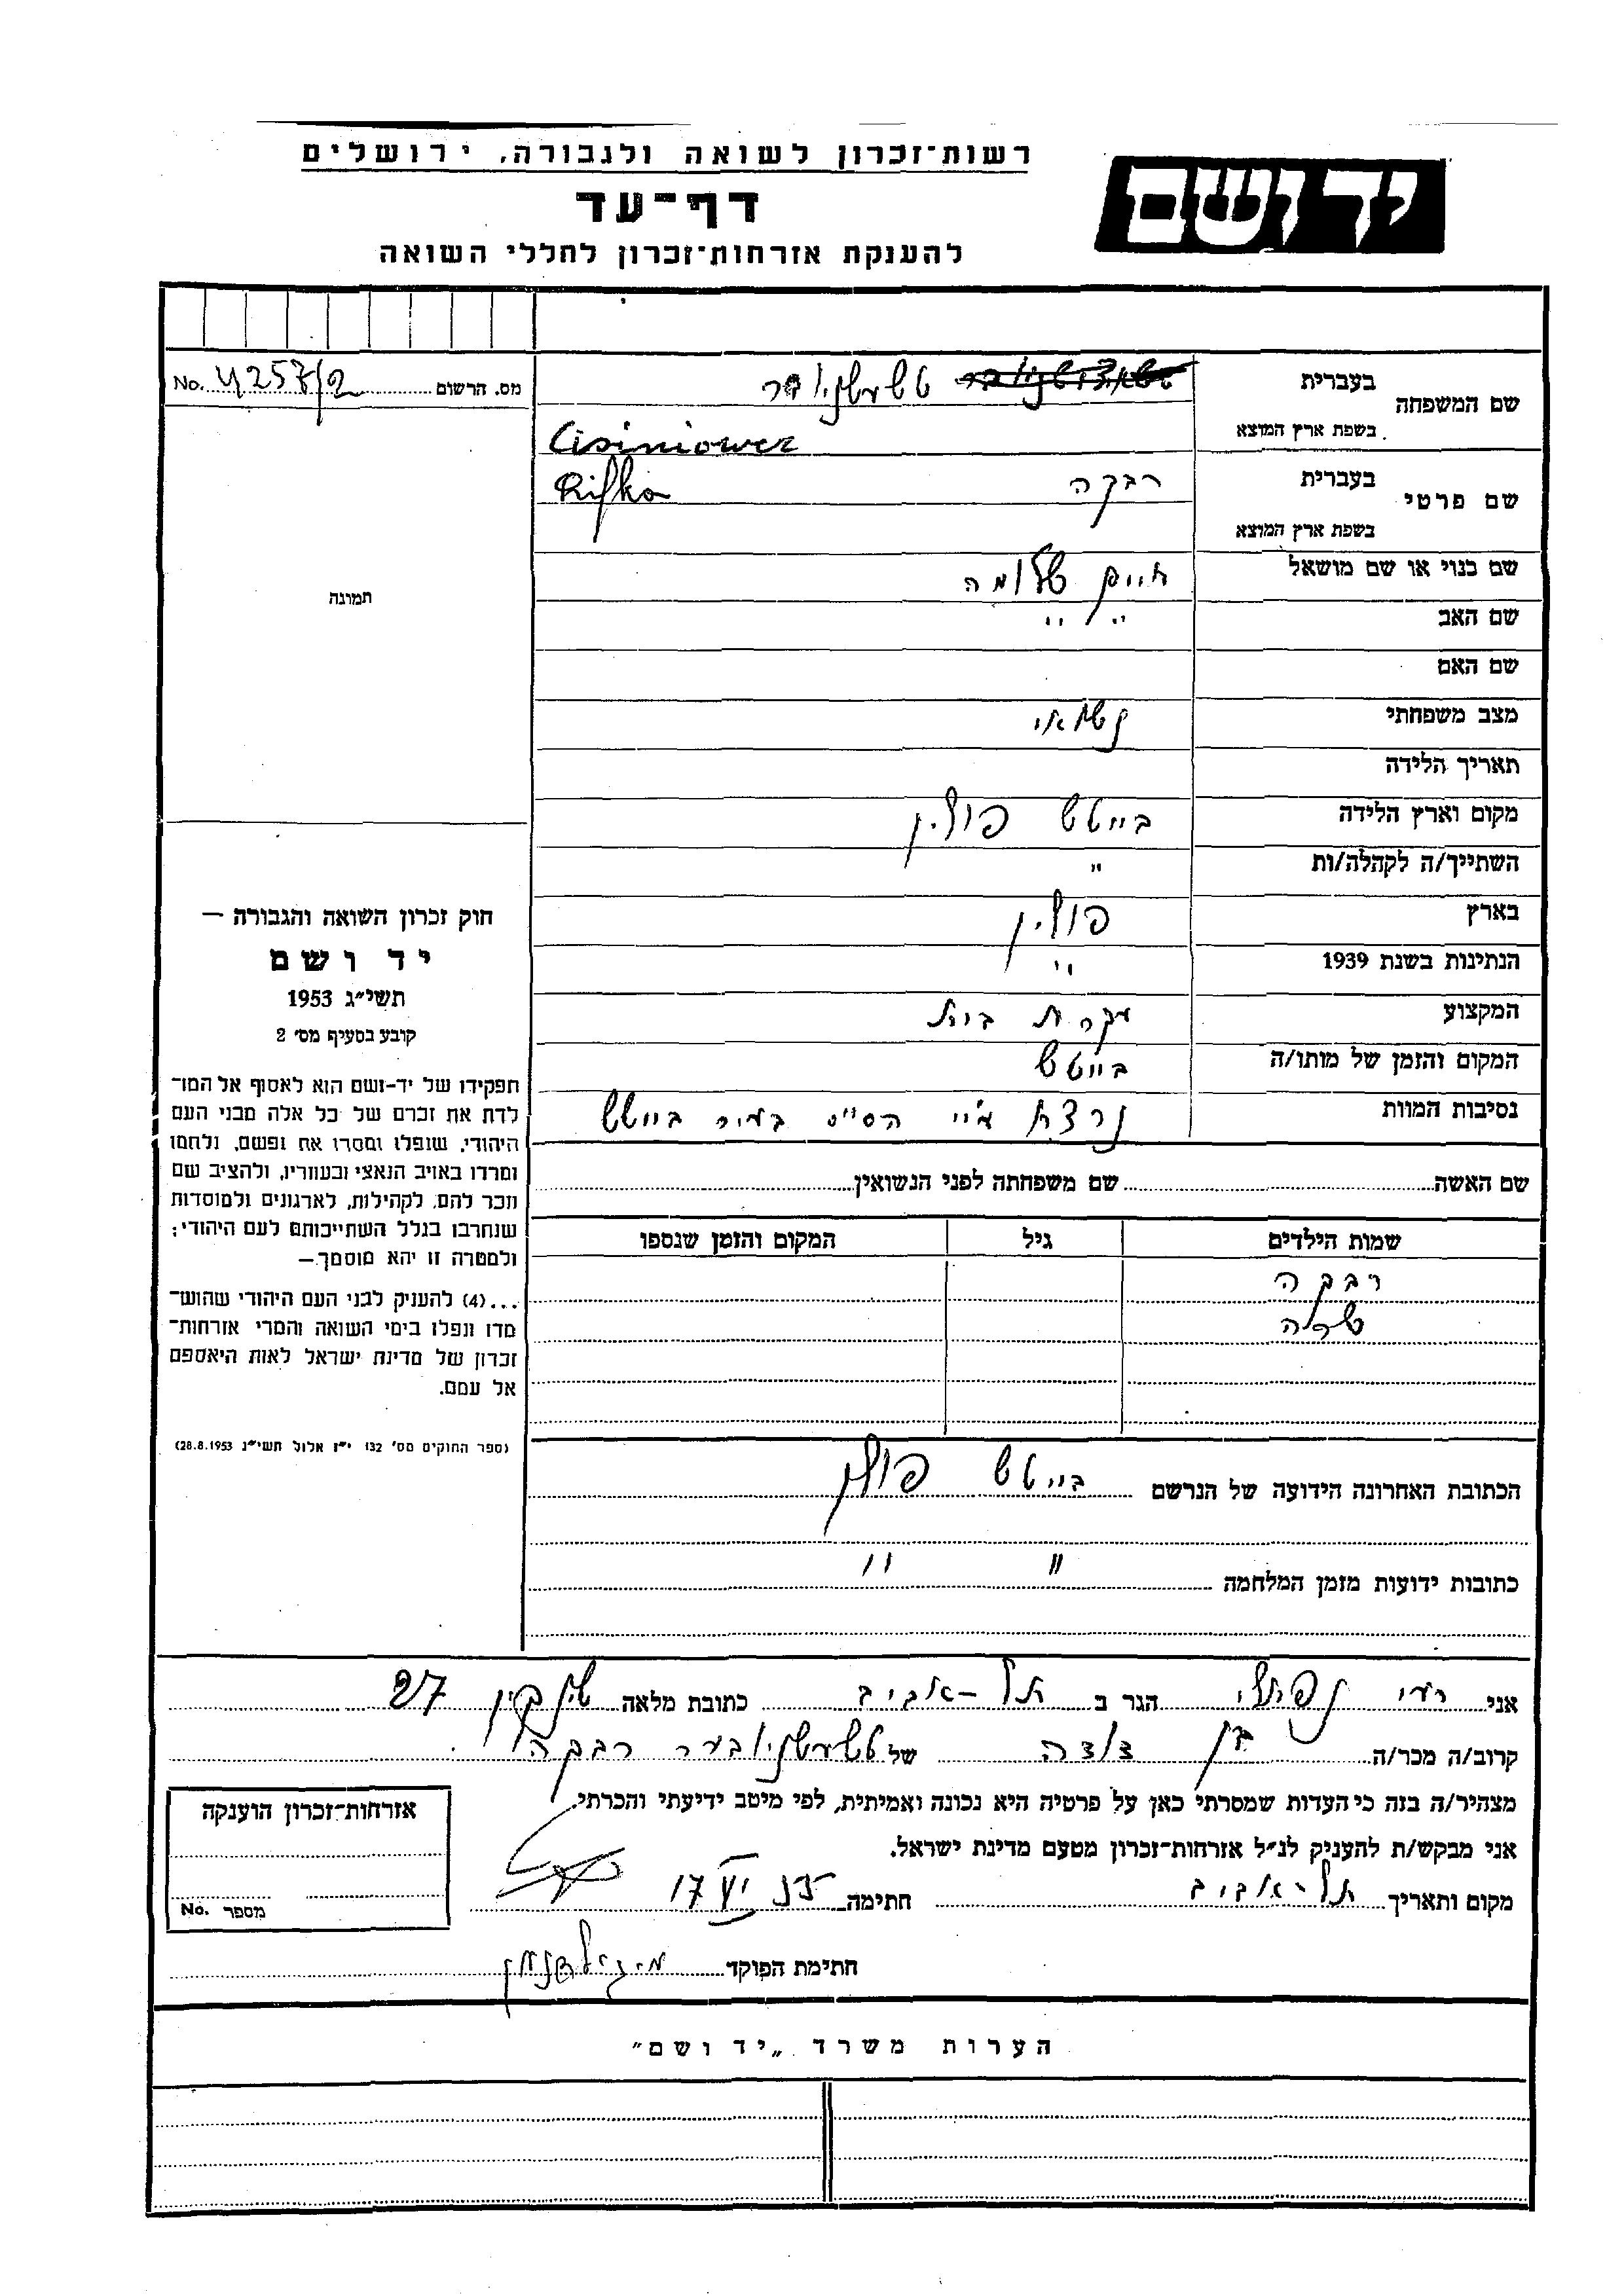 רשות־זכרון לשואה ולגבורה, ירושלים
יד ושם
דף־עד
להענקת אזרחות־זכרון לחללי השואה
מס. הרשום No. 4257/2
שם המשפחה
בעברית טשעשניובר
בשפת ארץ המוצא Cisiniower
שם פרטי
בעברית רבקה
בשפת ארץ המוצא Rifka
שם כנוי או שם מושאל חיים שלומה
שם האב " "
שם האם
מצב משפחתי נשואי
תאריך הלידה
מקום וארץ הלידה בייטש פולין
השתייך/ה לקהלה/ות "
בארץ פולין
הנתינות בשנת 1939 "
המקצוע עקרת בית
המקום והזמן של מותו/ה בייטש
נסיבות המוות נרצח ע"י הס"ס בעיר בייטש
שם האשה שם משפחתה לפני הנשואין
שמות הילדים גיל המקום והזמן שנספו
רבקה
שרלה
הכתובת האחרונה הידועה של הנרשם בייטש פולין
כתובות ידועות מזמן המלחמה " "
תמונה
חוק זכרון השואה והגבורה —
יד ושם
תשי"ג 1953
קובע בסעיף מס' 2
תפקידו של יד-ושם הוא לאסוף אל המו־
לדת את זכרם של כל אלה מבני העם
היהודי, שנפלו ומסרו את נפשם, נלחמו
ומרדו באויב הנאצי ובעוזריו, ולהציב שם
וזכר להם, לקהילות, לארגונים ולמוסדות
שנחרבו בגלל השתייכותם לעם היהודי;
ולמטרה זו יהא מוסמך —
...(4) להעניק לבני העם היהודי שהוש־
מדו ונפלו בימי השואה והמרי אזרחות־
זכרון של מדינת ישראל לאות היאספם
אל עמם.
(ספר החוקים מס' 132 י"ז אלול תשי"ג 28.8.1953)
אני רעי נפתלי הגר ב תל-אביב כתובת מלאה שינקין 27
קרוב/ה מכר/ה בן דודה של טשעשניובער רבקה
מצהיר/ה בזה כי העדות שמסרתי כאן על פרטיה היא נכונה ואמיתית, לפי מיטב ידיעתי והכרתי.
אני מבקש/ת להעניק לנ"ל אזרחות־זכרון מטעם מדינת ישראל.
מקום ותאריך תל-אביב חתימה
חתימת הפוקד
אזרחות־זכרון הוענקה
מספר No.
הערות משרד „יד ושם"